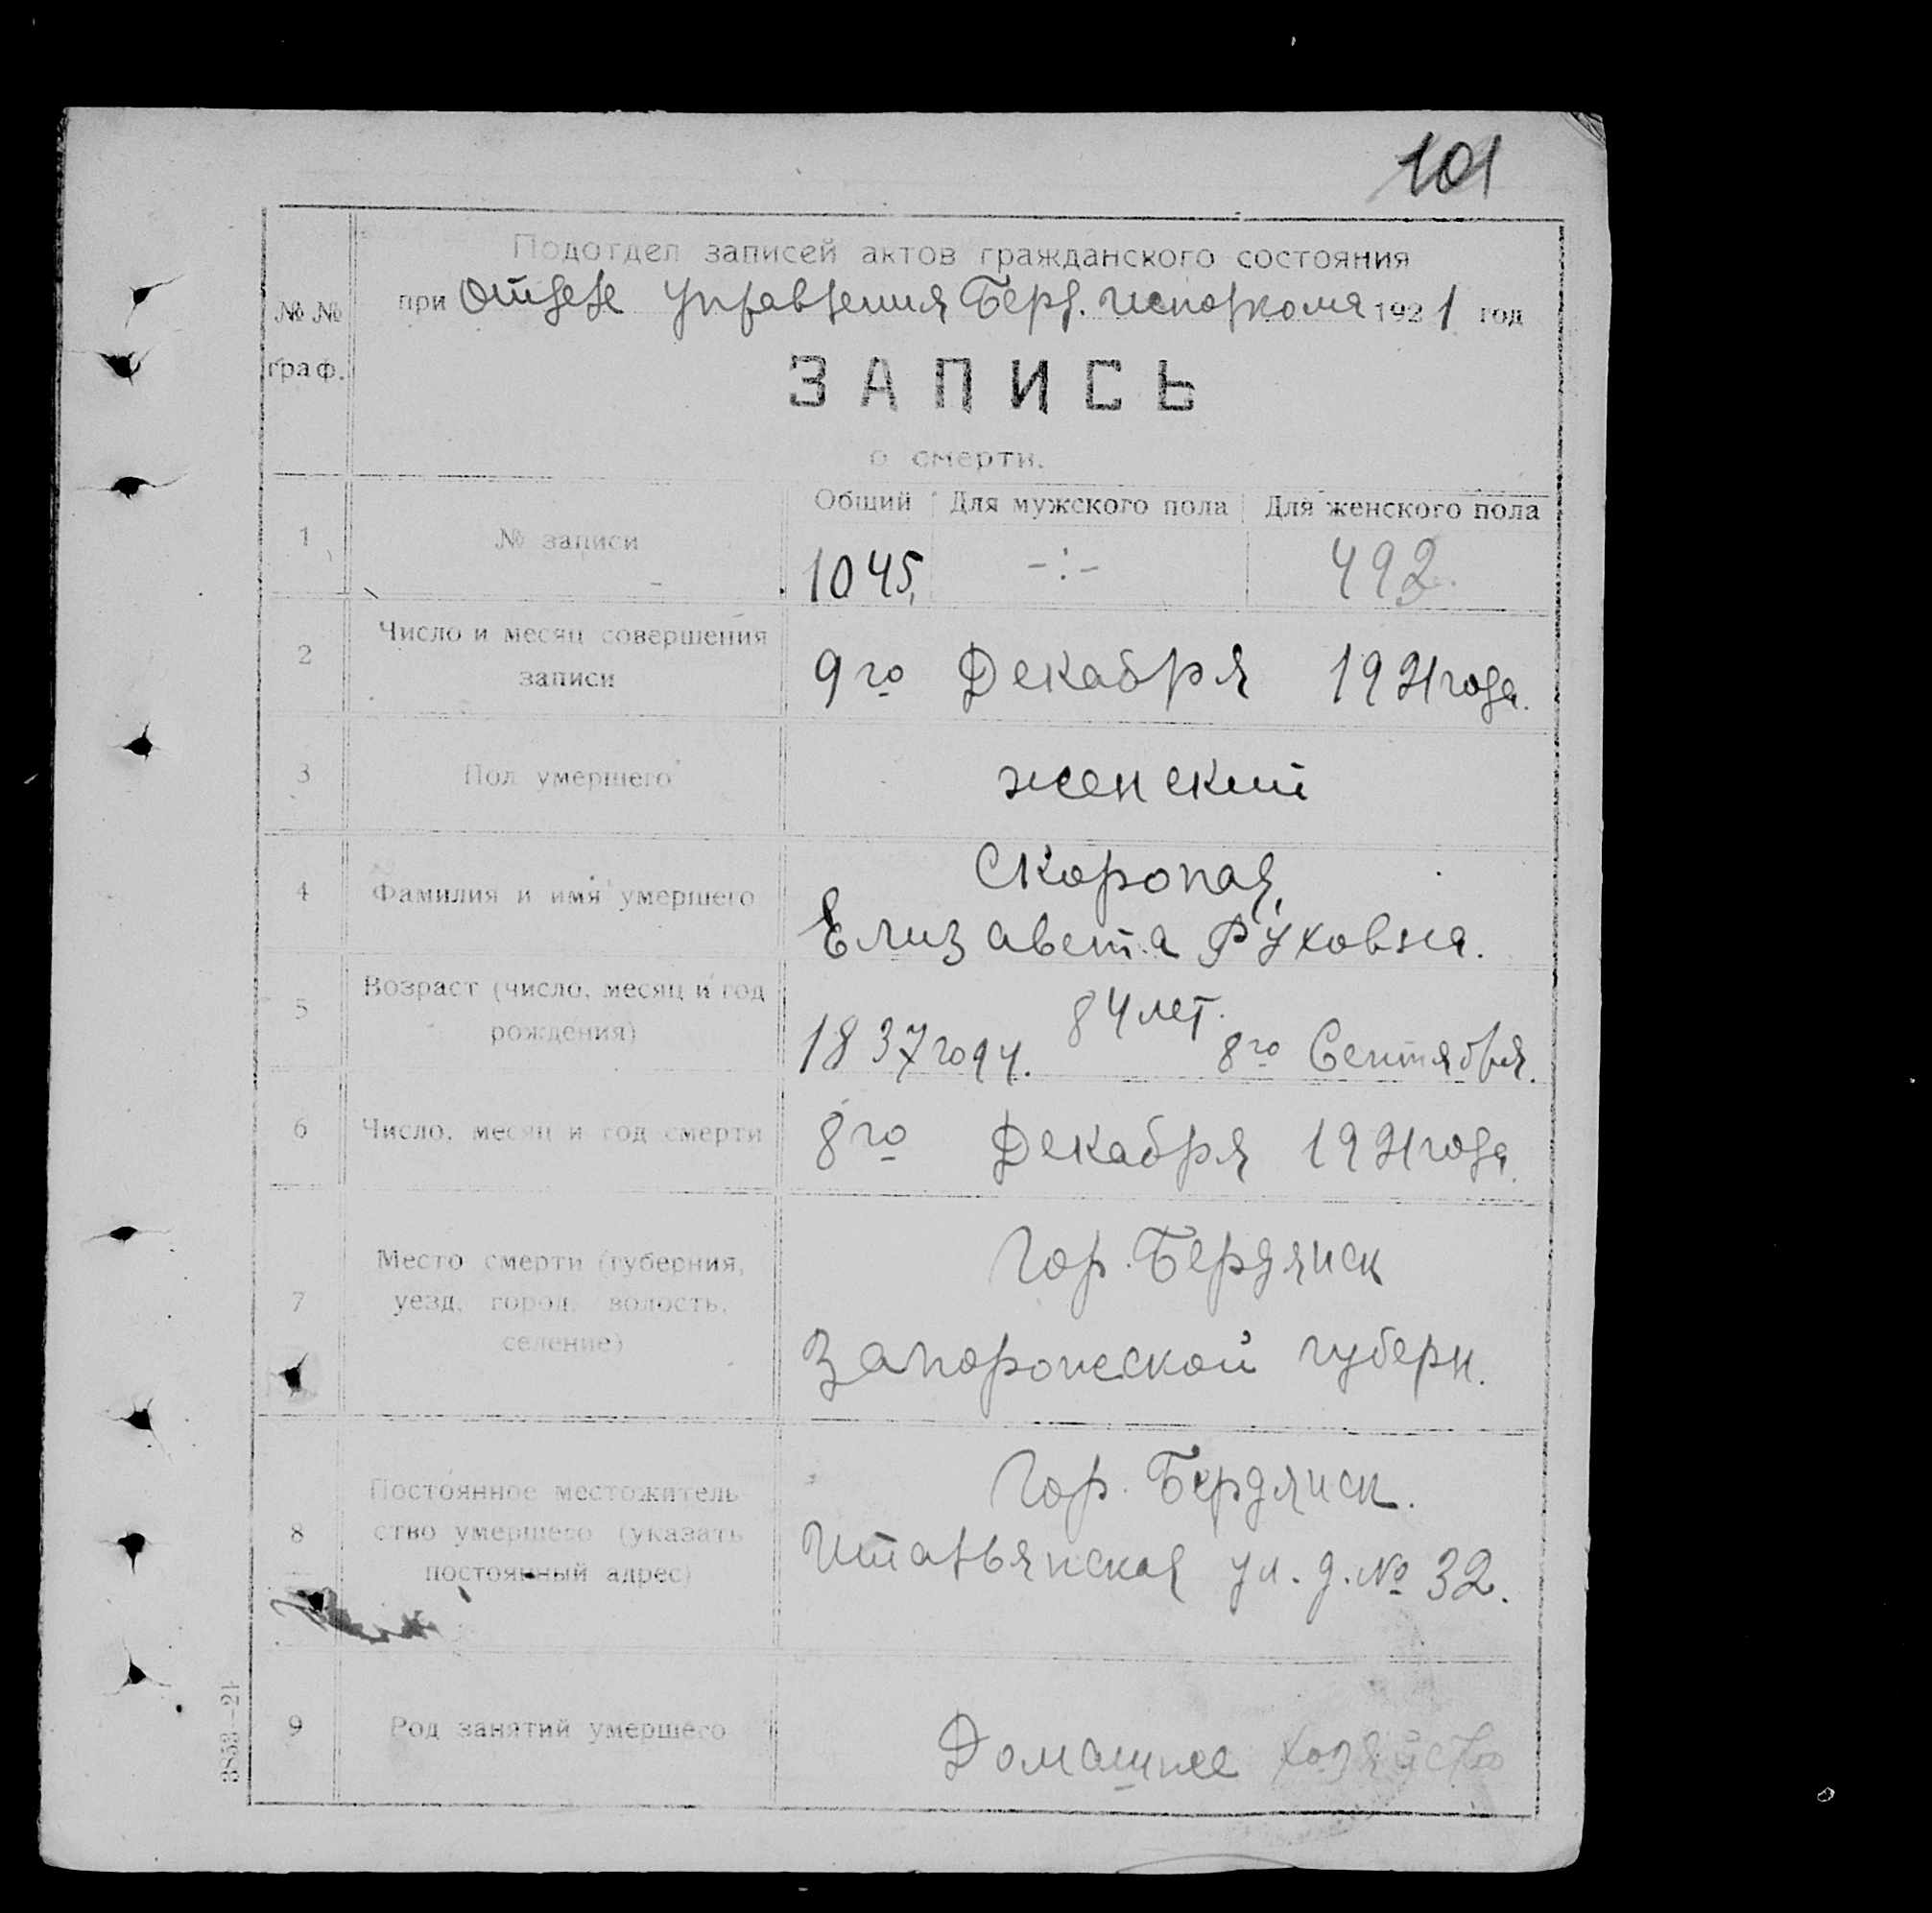 101
Подотдел записей актов гражданского состояния
при Отделе Управления Берд. Исполкома 1921 год
№№
граф.
ЗАПИСЬ
о смерти.
Общий Для мужского пола Для женского пола
1 № записи 1045. -:- 492.
2 Число и месяц совершения
записи
9го Декабря 1921 года.
3 Пол умершего женский
4 Фамилия и имя умершего
Скоропая,
Елизавета
5 Возраст (число, месяц и год
рождения)
84 лет.
1837 году. 8го Сентября.
6 Число, месяц и год смерти 8го Декабря 1921 года.
7 Место смерти (губерния,
уезд, город, волость,
селение)
Гор. Бердянск
Запорожской губерн.
8 Постоянное местожитель-
ство умершего (указать
постоянный адрес)
Гор. Бердянск.
Итальянская ул. д. № 32.
9 Род занятий умершего Домашнее хозяйство
3853—21